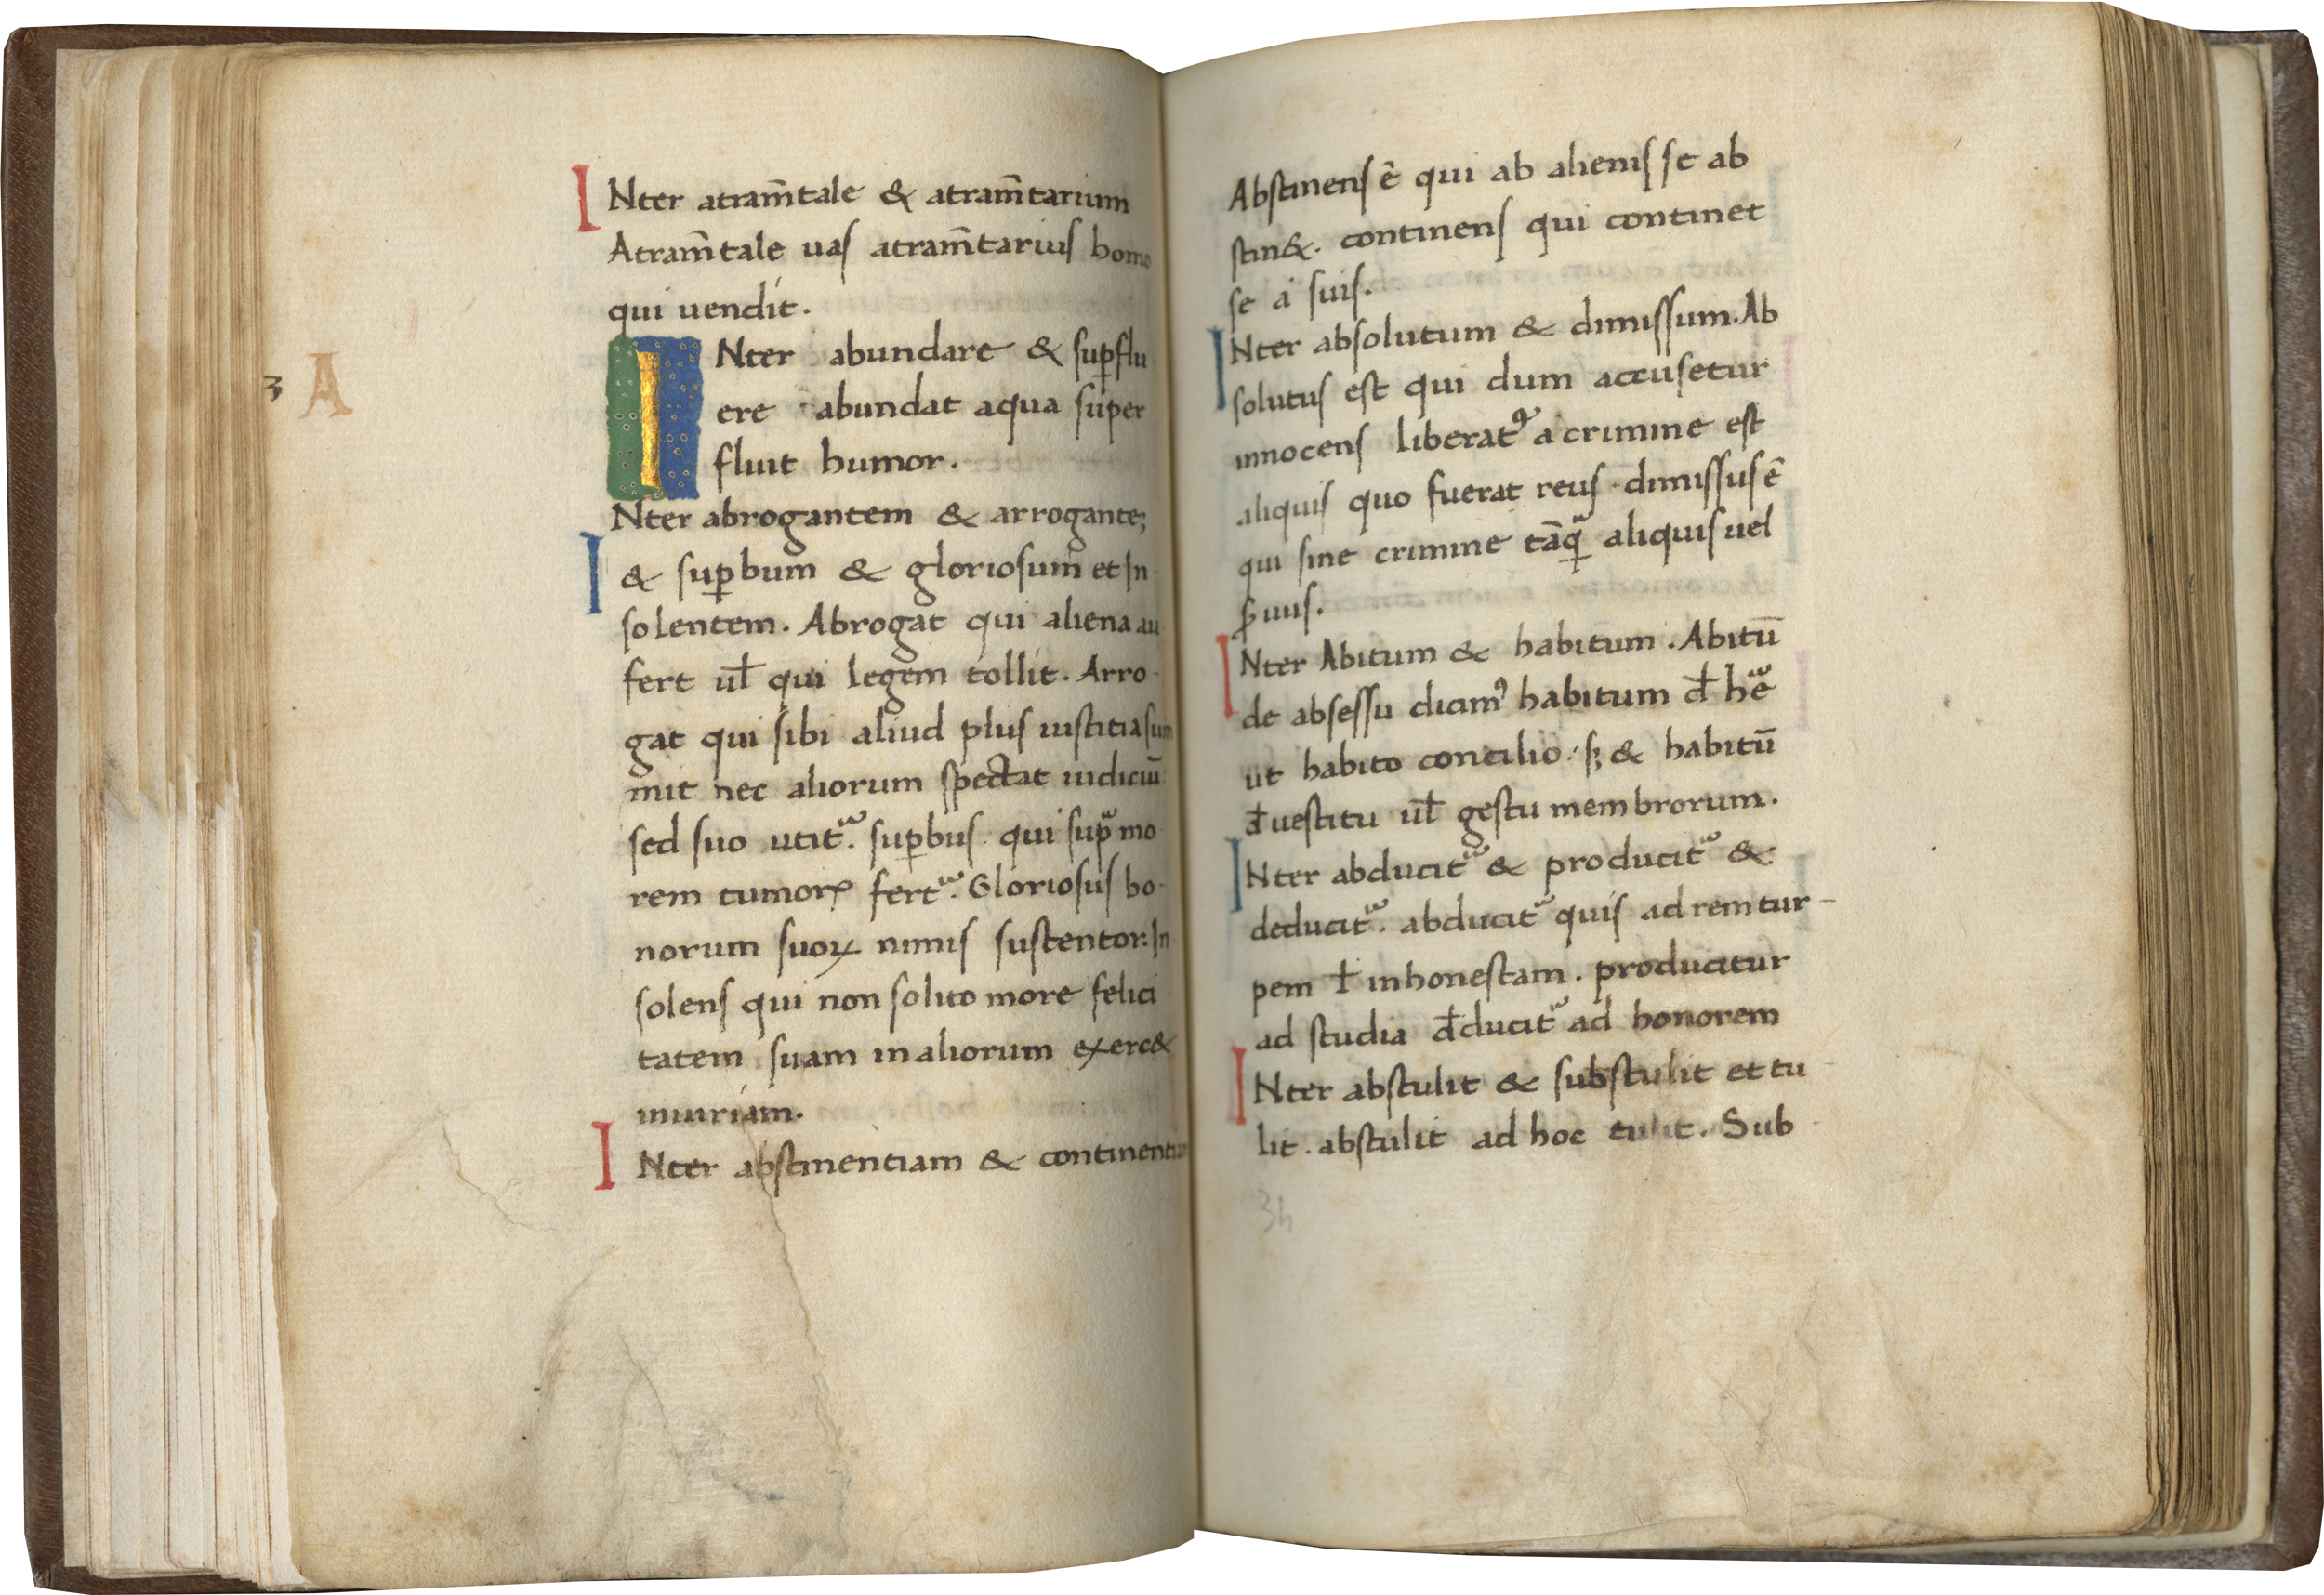 INter atram̄tale & atram̄tarium
Atram̄tale uaſ atram̄tariuſ homo
qui uendit.
3 A
INter abundare & ſuꝑflu
ere abundat aqua ſuper
fluit humor.
INter abrogantem & arrogante;
& ſuꝑbum & glorioſum et In
ſolentem. Abrogat qui aliena au
fert ul̄ qui legem tollit. Arro
gat qui ſibi aliud pluſ iuſtitia ſum
mit nec aliorum ſpectat iudiciū
ſed ſuo utit᷑. ſuꝑbuſ qui ſup᷑ mo
rem tumorꝭ fert᷑. Glorioſuſ bo
norum ſuoꝝ nimiſ ſuſtentor: In
ſolenſ qui non ſolito more felici
tatem ſuam in aliorum exerc&
iniuriam.
INter abſtinentiam & continentiam
Abſtinenſ ē qui ab alieniſ ſe ab
ſtin&. continenſ qui continet
ſe a ſuiſ.
INter abſolutum & dimiſſum. Ab
ſolutuſ eſt qui dum accuſetur
innocenſ liberatꝰ a crimine eſt
aliquiſ quo fuerat reuſ. dimiſſuſ ē
qui ſine crimine tāq᷑ aliquiſ uel
ꝓuuſ.
INter Abitum & habitum. Abitū
de abſeſſu dicimꝰ habitum đ hē᷑
ut habito concilio. ſꝫ & habitū
đ ueſtitu ul̄ geſtu membrorum.
INter abducit᷑ & producit᷑ &
deducit᷑. abducit᷑ quiſ ad rem tur
pem ł inhoneſtam. producitur
ad ſtudia đducit᷑ ad honorem
INter abſtulit & subſtulit et tu
lit. abſtulit ad hoc tulit. Sub
34